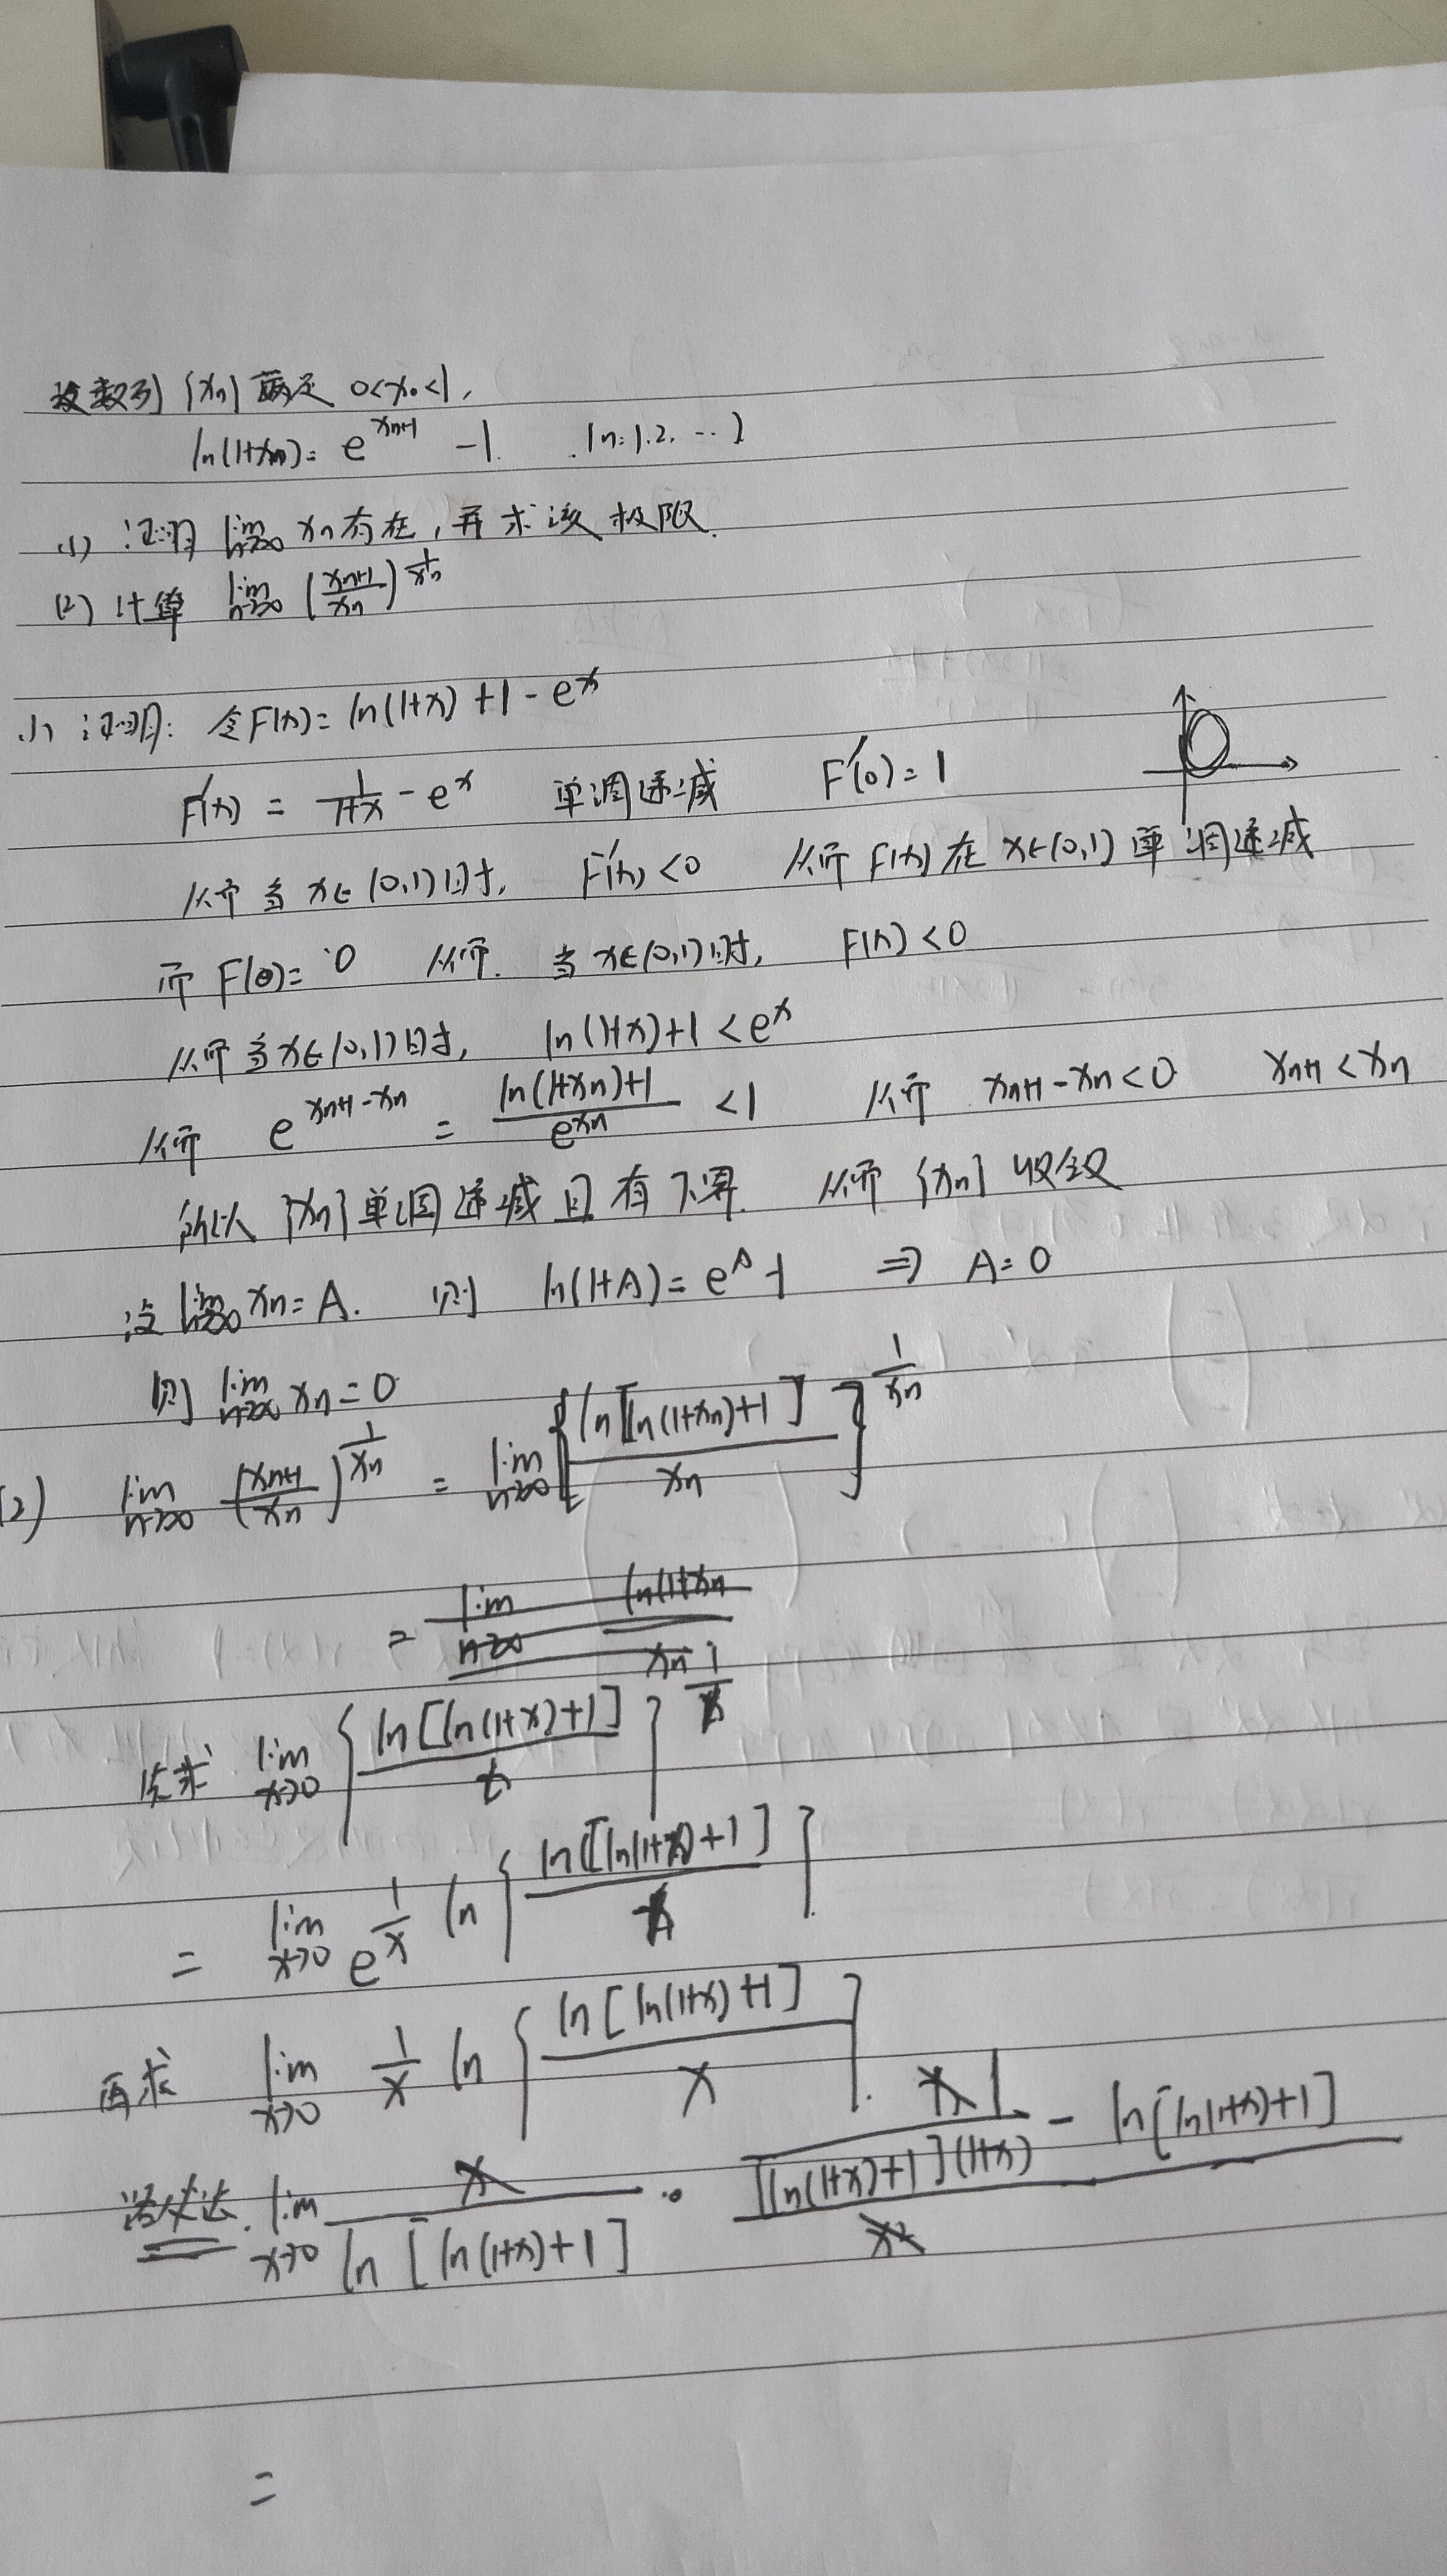 设数列{xn}满足 0<x0<1,
ln(1+xn)= e^{xn+1} -1. (n=1.2. …)
(1) 证明 lim_{n→∞} xn存在,并求该极限.
(2) 计算 lim_{n→∞} (xn+1/xn)^{1/xn}
(1) 证明: 令F(x)= ln(1+x)+1-e^x
F'(x) = 1/(1+x) - e^x 单调递减 F'(0)=1
从而 当 x∈(0,1)时, F'(x)<0 从而 F(x)在 x∈(0,1) 单调递减
而 F(0)= 0 从而. 当 x∈(0,1)时, F(x)<0
从而当x∈(0,1)时, ln(1+x)+1<e^x
从而 e^{xn+1-xn} = (ln(1+xn)+1)/e^{xn} <1 从而 xn+1-xn<0 xn+1<xn
所以 {xn}单调递减且有下界. 从而 {xn}收敛
设 lim_{n→∞} xn=A. 则 ln(1+A)= e^A-1 ⇒ A=0
则 lim_{n→∞} xn=0
(2) lim_{n→∞} (xn+1/xn)^{1/xn} = lim_{n→∞} {ln[ln(1+xn)+1]/xn}^{1/xn}
=
先求 lim_{x→0} {ln[ln(1+x)+1]/x}^{1/x}
= lim_{x→0} e^{1/x} ln {ln[ln(1+x)+1]/x}
再求 lim_{x→0} 1/x ln {ln[ln(1+x)+1]/x}.
洛必达. lim_{x→0} x/ln[ln(1+x)+1] · (x/([ln(1+x)+1](1+x)) - ln[ln(1+x)+1])/x²
=